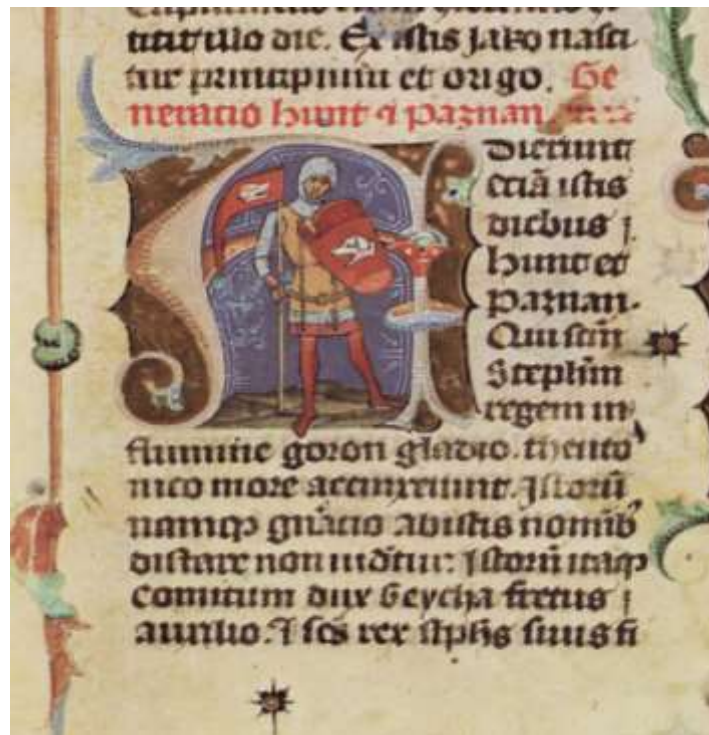 titit illo die. Ex istis jako nasci
tur principium et origo. Ge
neracio hunt et paznan
dierunt
eciā istis
diebus ⁊
hunt et
paznan.
Qui scm̄
Stephm̄
regem in
flumine goron gladio. theuto
nico more accinxerunt. Istorū
namqꝫ gn̄acio ab istis nomīb
distare non uidetur: Istorū itaqꝫ
comitum dux Geycha fretus
auxilio. ⁊ scs rex stephs suus fi